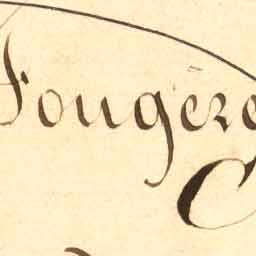 Fougère
C